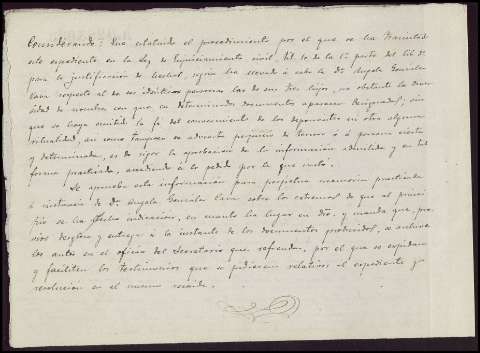 Considerando: Que estatuido el procedimiento por el que se ha tramitado
este expediente en la Ley de Enjuiciamiento civil, tít. 10 de la 1ª parte del lib. 3º
para la justificación de hechos, según ha llevado á cabo la Dª Angela Gonzalez
Cam respecto al de ser idénticas personas las de sus tres hijos, no obstante la diver
sidad de nombres con que en determinados documentos aparecen designados, sin
que se haya omitido la fé del conocimiento de los deponentes en otra alguna
virtualidad, así como tampoco se advierte perjuicio de tercero ó á persona cierta
y determinada, es de rigor la aprobación de la información admitida y en tal
forma practicada, accediendo á lo pedido por la que insta.
Se aprueba esta información para perpetua memoria practicada
á instancia de Dª Angela Gonzalez Cam sobre los extremos de que al princi
pio se ha fecho indicación, en cuanto ha lugar en dro. y manda que, pre
vios desglose y entrega á la instante de los documentos producidos, se archiven
los autos en el oficio del Secretario que refrenda, por el que se expidan
y faciliten los testimonios que se pidiesen relativos al expediente y
resolución en el mismo recaída.